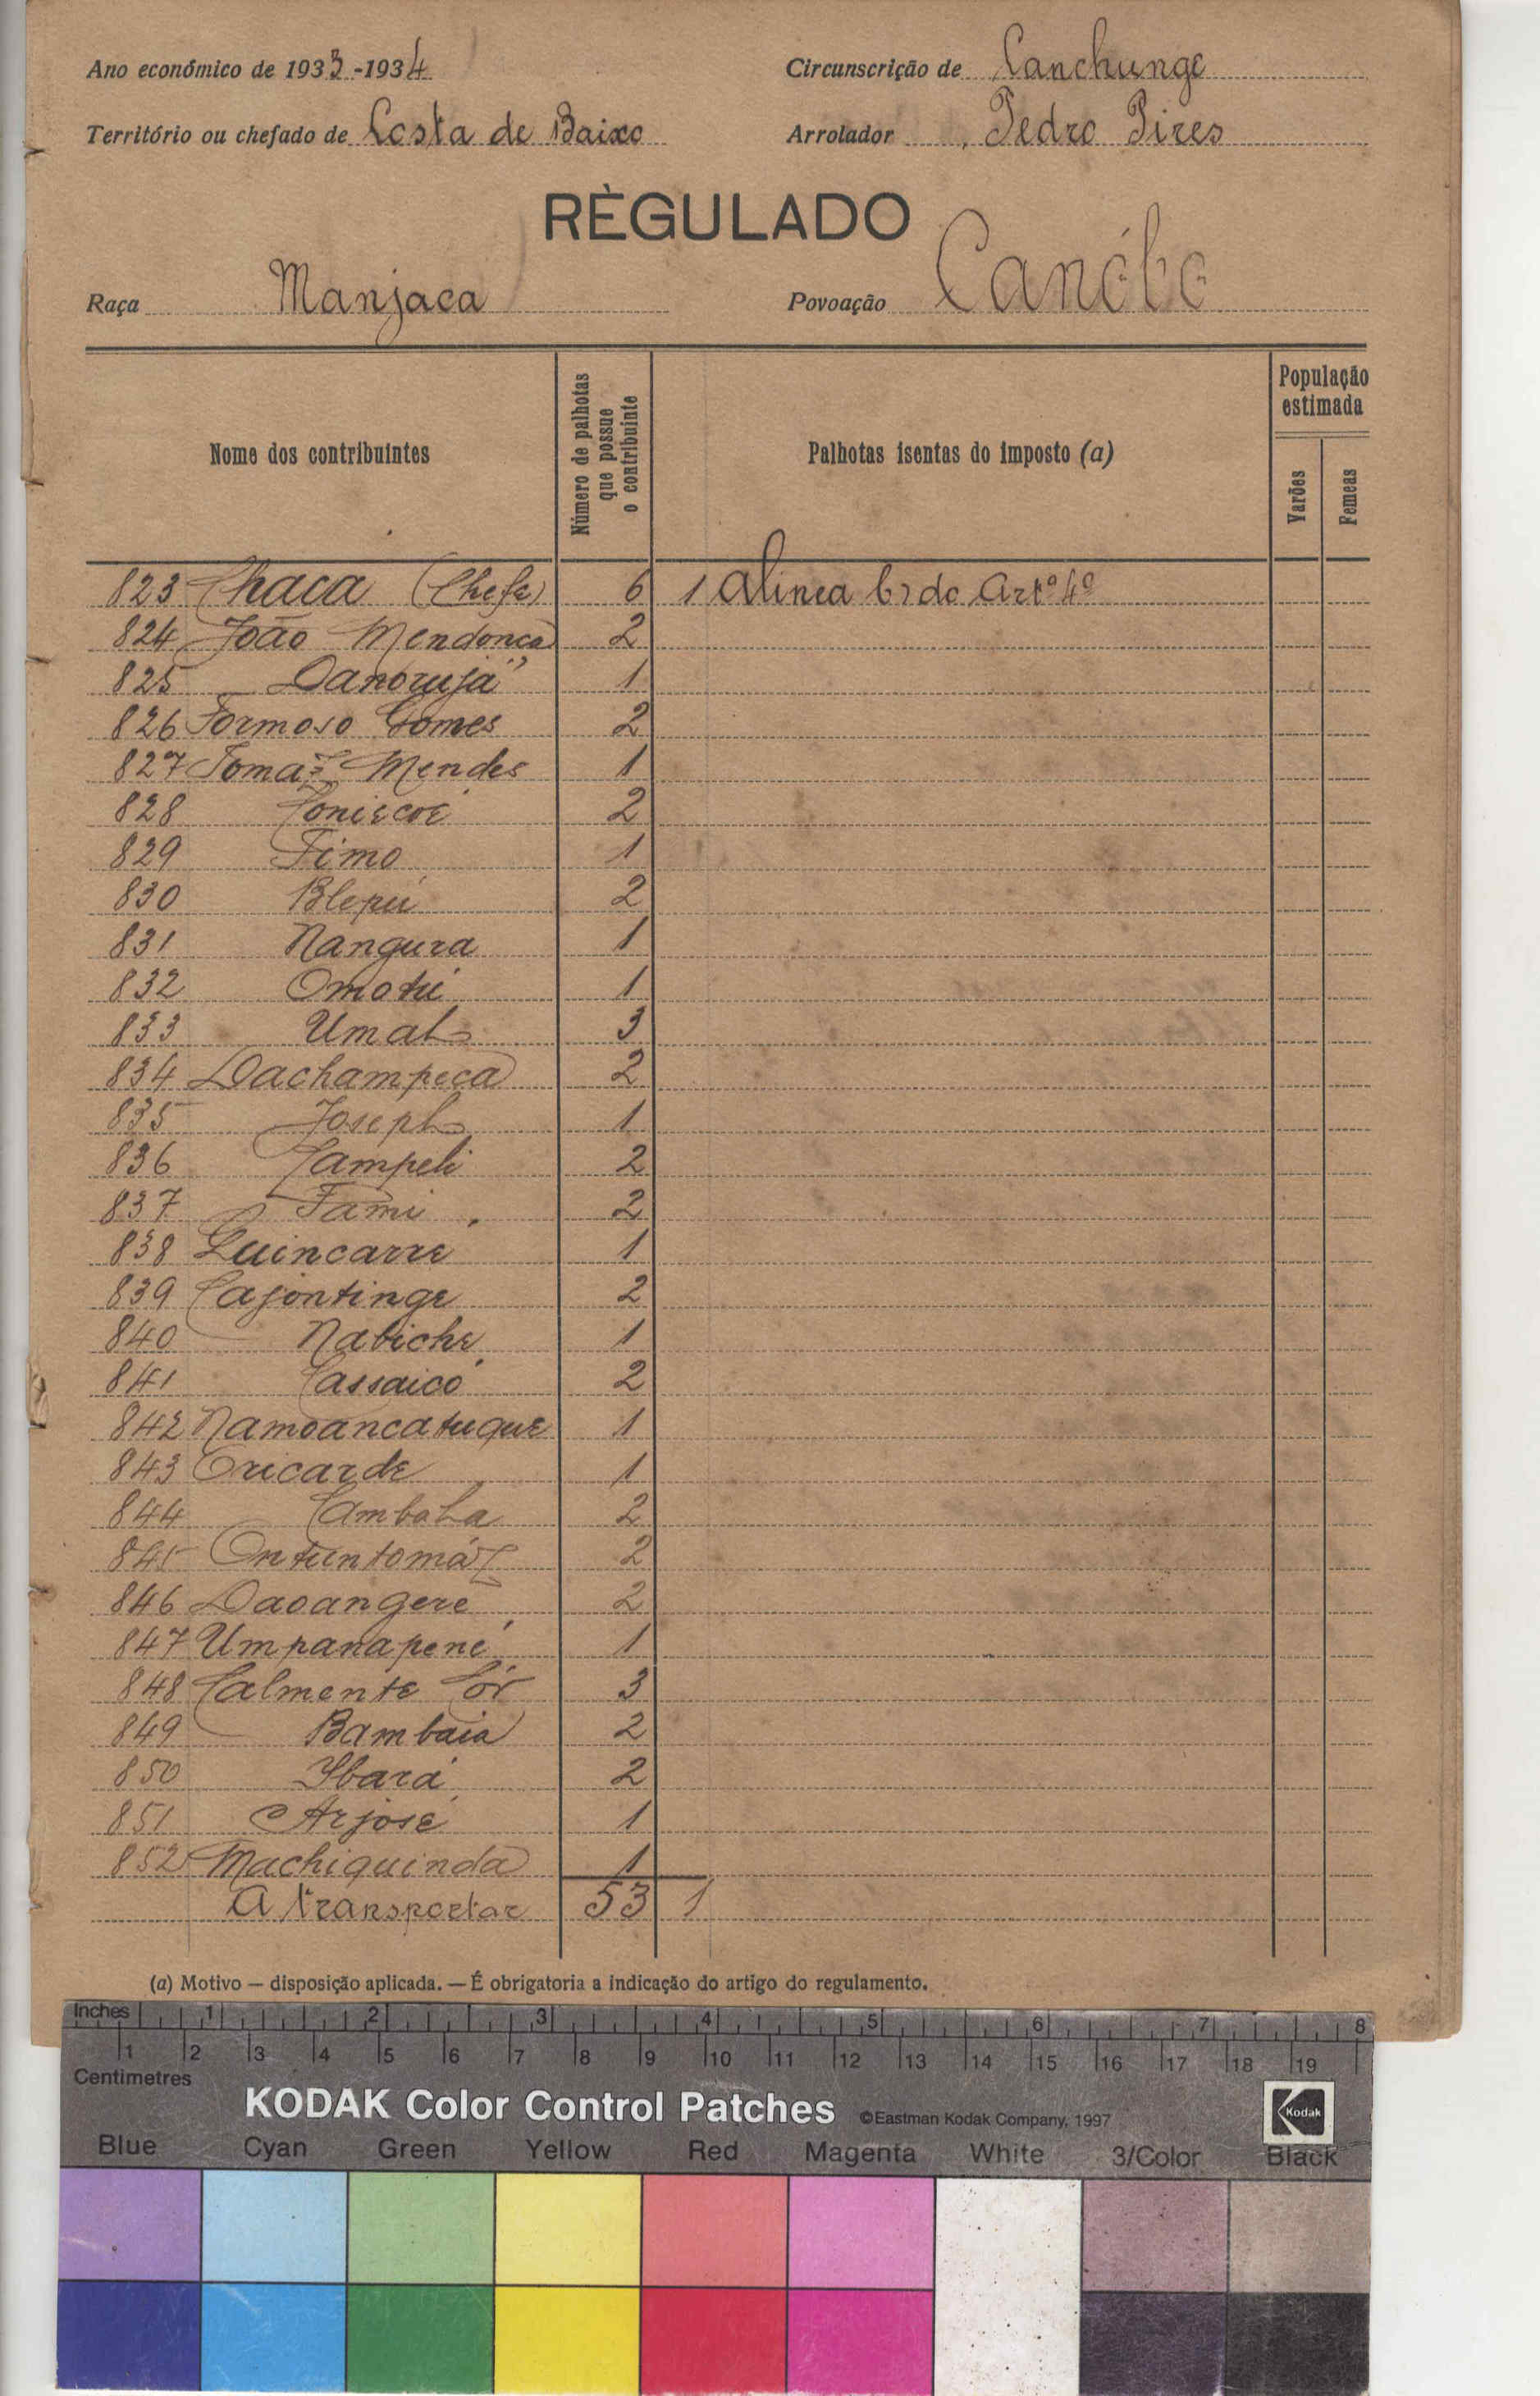 Ano económico de 1933-1934 Circunscrição de Canchungo
Território ou chefado de Costa de Baixo Arrolador Pedro Pires
RÈGULADO
Raça Manjaca Povoação Canóbo
Nome dos contribuintes Número de palhotas que possue o contribuinte Palhotas isentas do imposto (a) População estimada
Varões Femeas
823 Chaca (Chefe) 6 1 Alinea b) do Artº 4º
824 João Mendonca 2
825 Danorujá 1
826 Formoso Gomes 2
827 Tomaz Mendes 1
828 Coniscoé 2
829 Timo 1
830 Blepú 2
831 Nangura 1
832 Omotú 1
833 Umal 3
834 Dachampeca 2
835 Joseph 1
836 Campeli 2
837 Fami 2
838 Quincarré 1
839 Cajontinge 2
840 Nabiche 1
841 Cassaicó 2
842 Namoancatuque 1
843 Oricarde 1
844 Cambala 2
845 Ontuntomáz 2
846 Daoangere 2
847 Umpanapené 1
848 Calmente Cór 3
849 Bambaia 2
850 Ibará 2
851 Arjosé 1
852 Machiquinda 1
A transportar 53 1
(a) Motivo — disposição aplicada. — É obrigatoria a indicação do artigo do regulamento.
Inches 1 2 3 4 5 6 7 8
1 2 3 4 5 6 7 8 9 10 11 12 13 14 15 16 17 18 19
Centimetres
KODAK Color Control Patches ©Eastman Kodak Company, 1997 Kodak
Blue Cyan Green Yellow Red Magenta White 3/Color Black